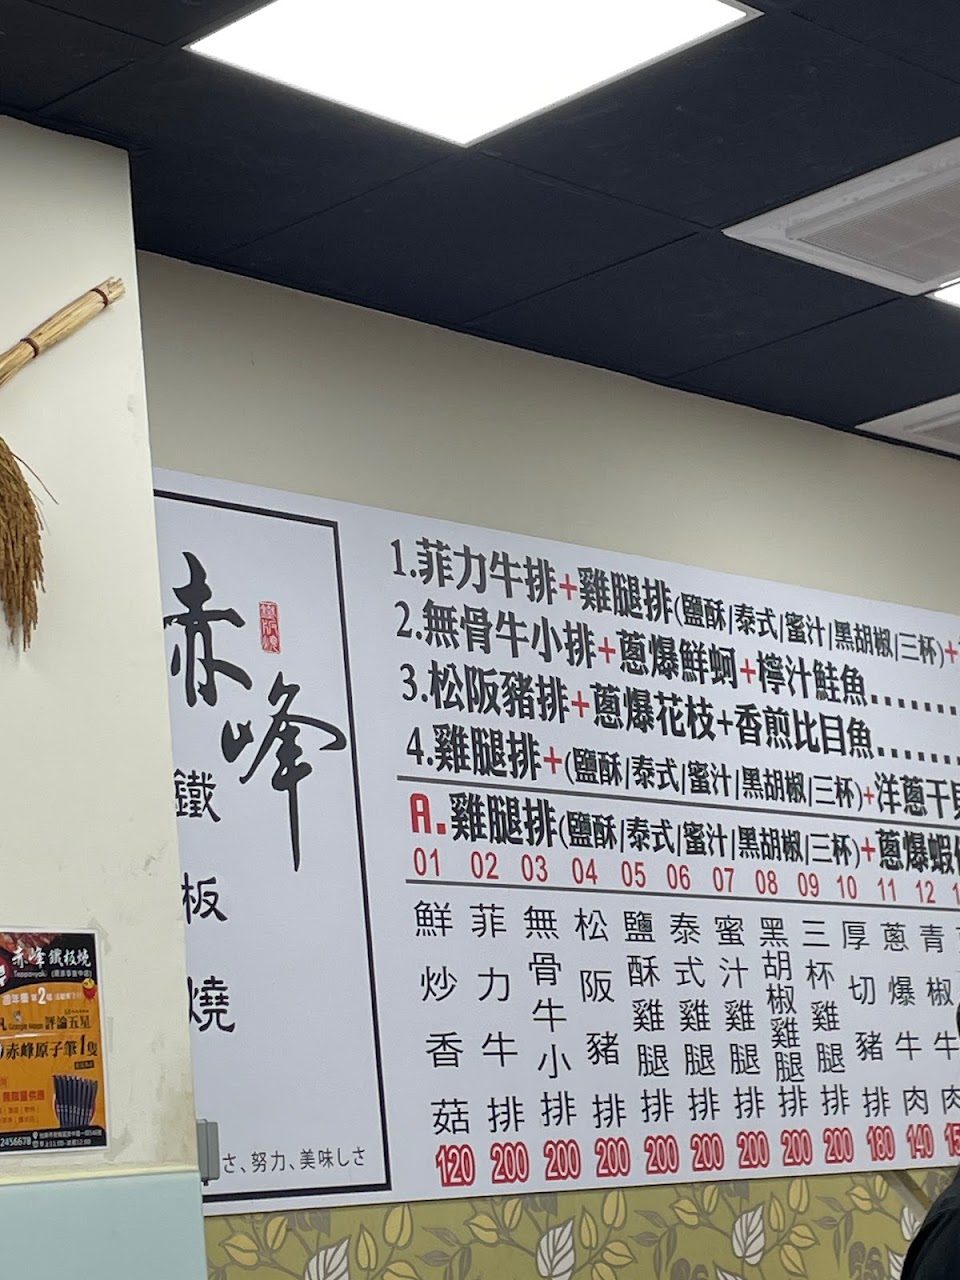 赤峰
鐵板燒
さ、努力、美味しさ
1.菲力牛排+雞腿排(鹽酥/泰式/蜜汁/黑胡椒/三杯)+
2.無骨牛小排+蔥爆鮮蚵+檸汁鮭魚
3.松阪豬排+蔥爆花枝+香煎比目魚
4.雞腿排+(鹽酥/泰式/蜜汁/黑胡椒/三杯)+洋蔥干貝
A.雞腿排(鹽酥/泰式/蜜汁/黑胡椒/三杯)+蔥爆蝦
01 鮮炒香菇 120
02 菲力牛排 200
03 無骨牛小排 200
04 松阪豬排 200
05 鹽酥雞腿排 200
06 泰式雞腿排 200
07 蜜汁雞腿排 200
08 黑胡椒雞腿排 200
09 三杯雞腿排 200
10 厚切豬排 180
11 蔥爆牛肉 140
12 青椒牛肉
赤峰鐵板燒
Teppanyaki
週年慶 第2
Google Maps 評論五星
赤峰原子筆1隻